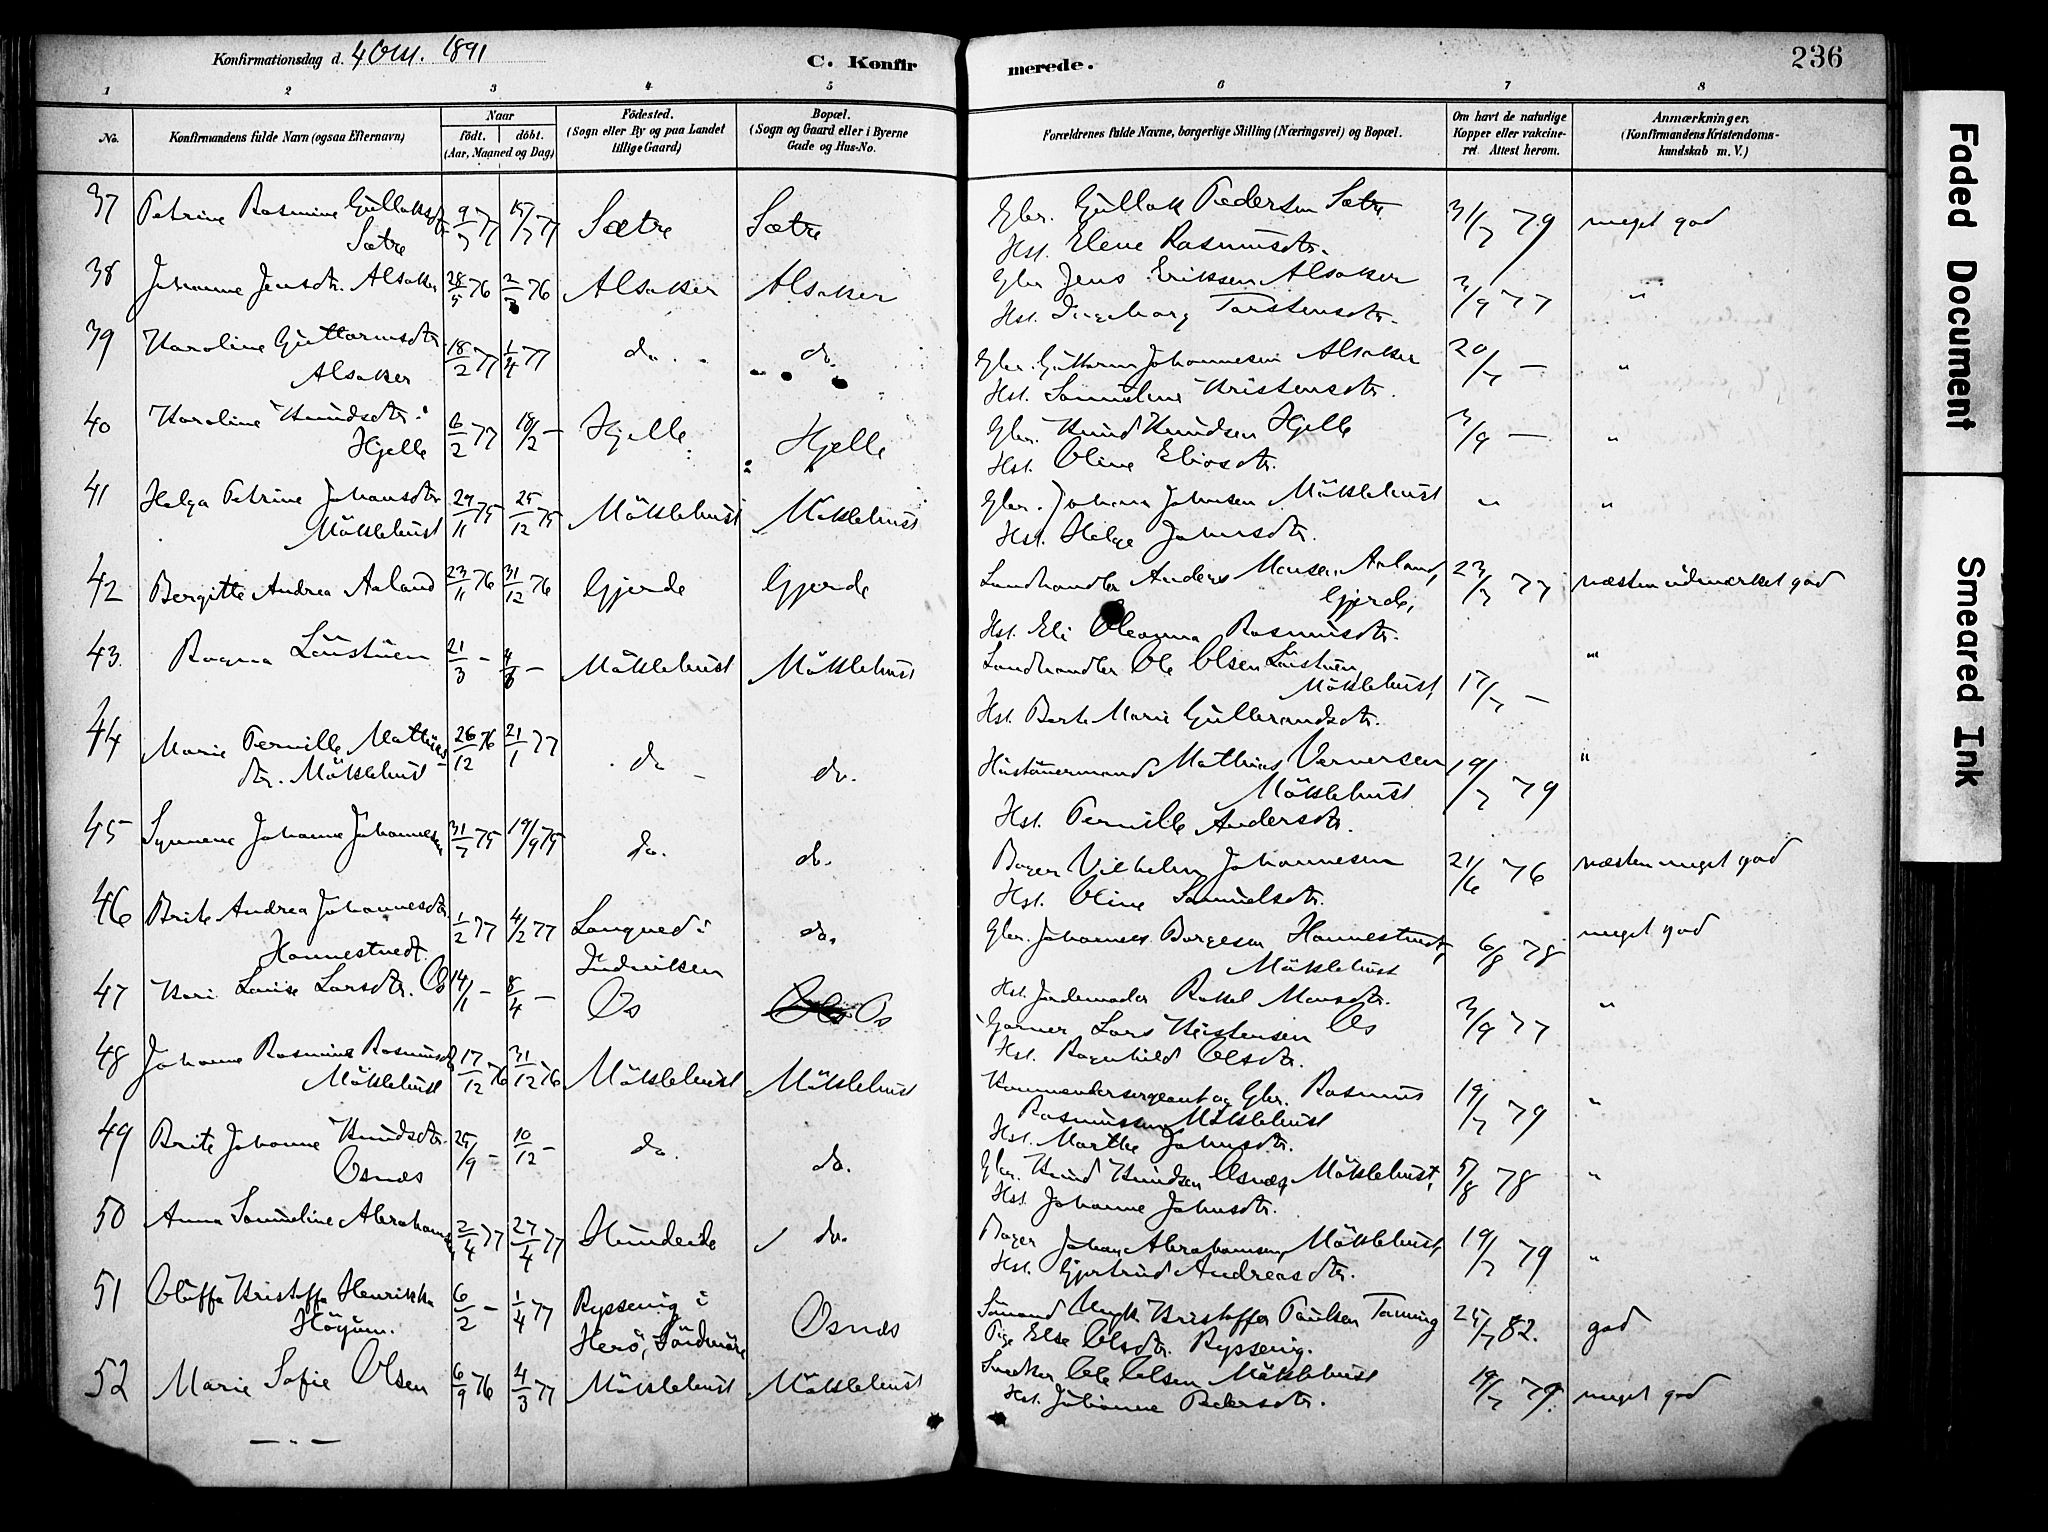 Konfirmationsdag d. 4 Okt. 1891
C. Konfirmerede.
236
1 2 3 4 5 6 7 8
No.
Konfirmandens fulde Navn (ogsaa Efternavn)
Naar
födt. döbt.
(Aar, Maaned og Dag)
Födested.
(Sogn eller By og paa Landet
tillige Gaard)
Bopæl.
(Sogn og Gaard eller i Byerne
Gade og Hus-No.
Forældrenes fulde Navne, borgerlige Stilling (Næringsvei) og Bopæl.
Om havt de naturlige
Kopper eller vakcine-
ret. Attest herom.
Anmærkninger.
(Konfirmandens Kristendoms-
kundskab m. V.)
37 Petrine Rasmine Gullaksdtr. 9/7 77 15/7 77 Sætre Sætre Gbr. Gullak Pedersen Sætre 31/7 79 meget god
Sætre Hst. Elene Rasmusdtr.
38 Johanne Jensdtr. Alsaker 28/5 76 2/7 76 Alsaker Alsaker Gbr Jens Eriksen Alsaker 3/9 77 "
Hst. Ingeborg Torstensdtr.
39 Karoline Guttormsdtr 18/2 77 1/4 77 do. do. Gbr. Guttorm Johannesen Alsaker 20/7 — "
Alsaker Hst. Samueline Kristensdtr.
40 Karoline Knudsdtr. 6/2 77 18/2 — Hjelle Hjelle Gbr. Knud Knudsen Hjelle 3/9 — "
Hjelle Hst. Oline Eliasdtr.
41 Helga Petrine Johansdtr 29/11 75 25/12 75 Möklebust Möklebust Gbr. Johan Johnsen Möklebust " "
Möklebust Hst. Helge Johnsdtr.
42 Bergitte Andrea Aaland 23/11 76 31/12 76 Gjerde Gjerde Landhandler Anders Monsen Aaland, 23/7 77 næsten udmærket god
Gjerde,
Hst. Eli Oleanna Rasmusdtr.
43 Ragna Löustuen 21/3 — Möklebust Möklebust Landhandler Ole Olsen Löustuen, "
Möklebust, 17/7 —
Hst. Berte Marie Gulbrandsdtr.
44 Marie Pernille Mathias 26/12 76 21/1 77 do do. Husmand Mathias Vernersen 19/7 79 "
dtr. Möklebust Möklebust
Hst. Pernille Andersdtr.
45 Synneve Johanne Johannesen 31/7 75 19/9 75 do. do. Bager Vilhelm Johannesen 21/6 76 næsten meget god
Hst. Oline Samuelsdtr.
46 Brite Andrea Johannesdtr 1/2 77 4/2 77 do. Gbr. Johannes Borgesen Hannestvedt, 6/8 78 meget god
Hannestvedt. Indviken Möklebust
Hst. Jordemoder Rakel Monsdtr.
47 Kari Louise Larsdtr. Os 14/1 — 8/4 — Os Os Garver Lars Kristensen Os 3/9 77 "
Hst. Ragnhild Olsdtr.
48 Johanne Rasmine Rasmusdtr 17/12 76 31/12 76 Möklebust Möklebust Kommandersergeant og Gbr. Rasmus 19/7 79 "
Möklebust Rasmussen Möklebust
Hst. Marthe Johnsdtr.
49 Brite Johanne Knudsdtr. 25/9 — 10/12 — do. do. Gbr. Knud Knudsen Osnæs, Möklebust, 5/8 78 "
Osnæs Hst. Johanne Johnsdtr.
50 Anna Samueline Abrahamsen 2/4 77 27/4 77 Hundeide do. Bager Johan Abrahamsen, Möklebust, 19/7 79 "
Hst. Gjertrud Andreasdtr.
51 Oluffa Kristoffa Henrikka 6/2 — 1/4 77 Osnæs Sömand Ungk. Kristoffer Paulsen 25/7 82. god
Herö, Söndmöre Pige Else Olsdtr.
52 Marie Sofie Olsen 6/9 76 4/3 77 Möklebust Möklebust Snedker Ole Olsen Möklebust 19/7 79. meget god
Hst. Johanne Pedersdtr.
— " —
Faded Document
Smeared Ink